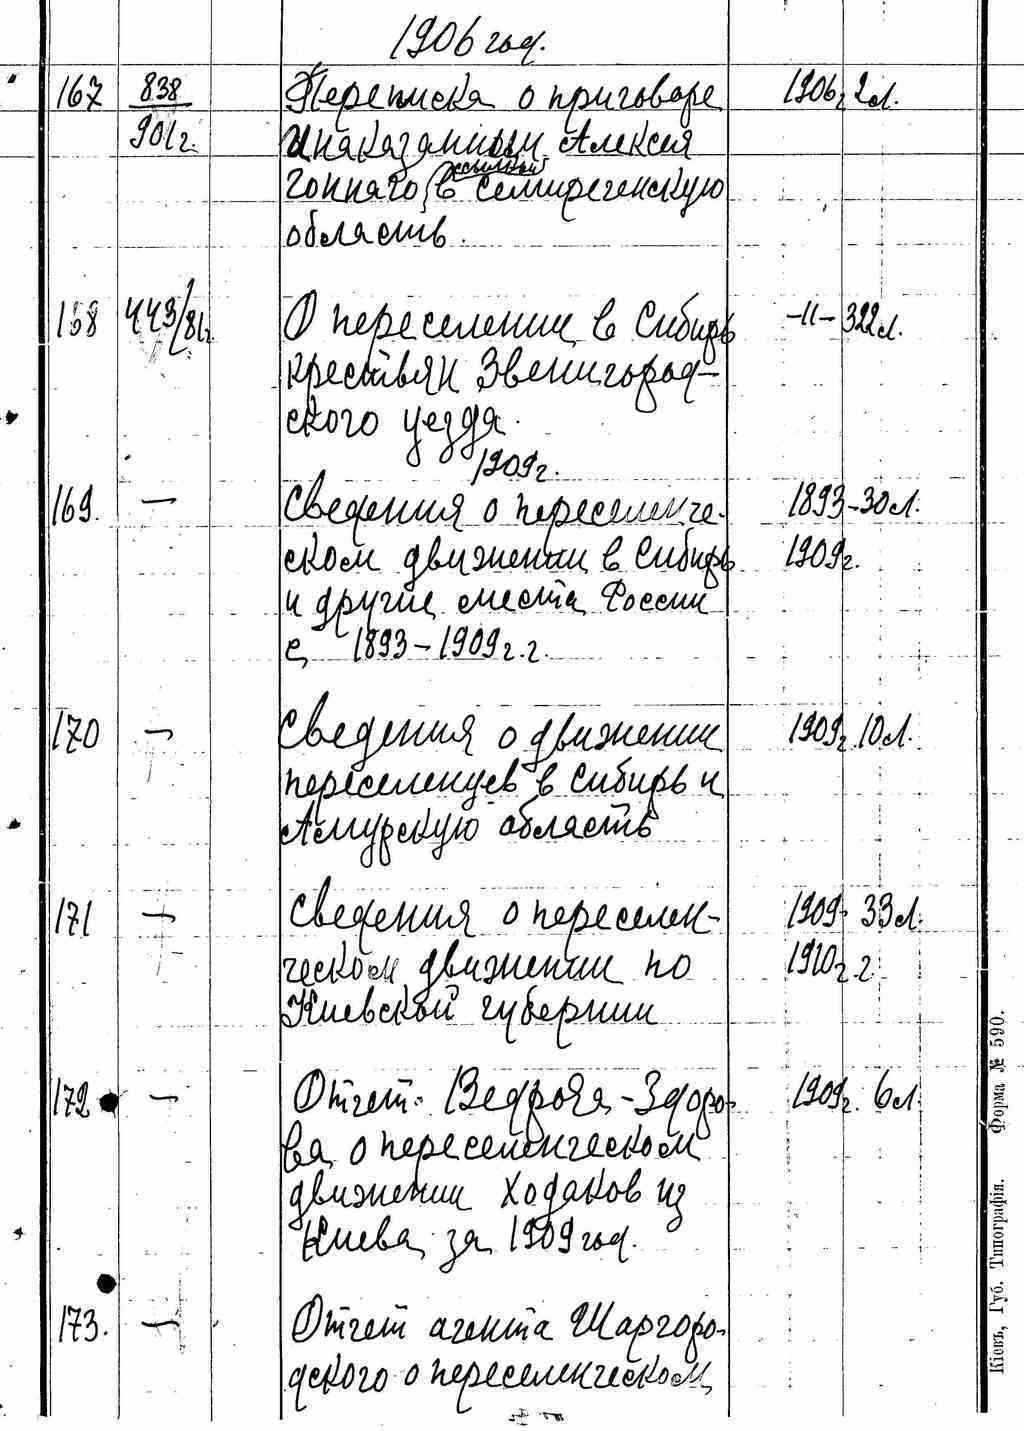 1906 год.
167 838 Переписка о приговоре 1906г. 2л.
901г. и наказанным Алексея
ссыльный
Гоннаго, в Семиреченскую
область.
168 443/81г. О переселении в Сибирь -11- 322л.
крестьян Звенигород-
ского уезда.
1909г.
169. — Сведения о переселенче- 1893- 30л.
ском движении в Сибирь 1909г.
и другие места России
с 1893-1909г.г.
170 — Сведения о движении 1909г. 10л.
переселенцев в Сибирь и
Амурскую область
171 — Сведения о переселен- 1909- 33л.
ческом движении по 1910г.г.
Киевской губернии
172 — Отчет Ведрова-Здоро- 1909г. 6л.
ва о переселенческом
движении ходаков из
Киева за 1909 год.
173. — Отчет агента Шаргоро-
дского о переселенческом
Кіевъ, Губ. Типографія. Форма № 590.